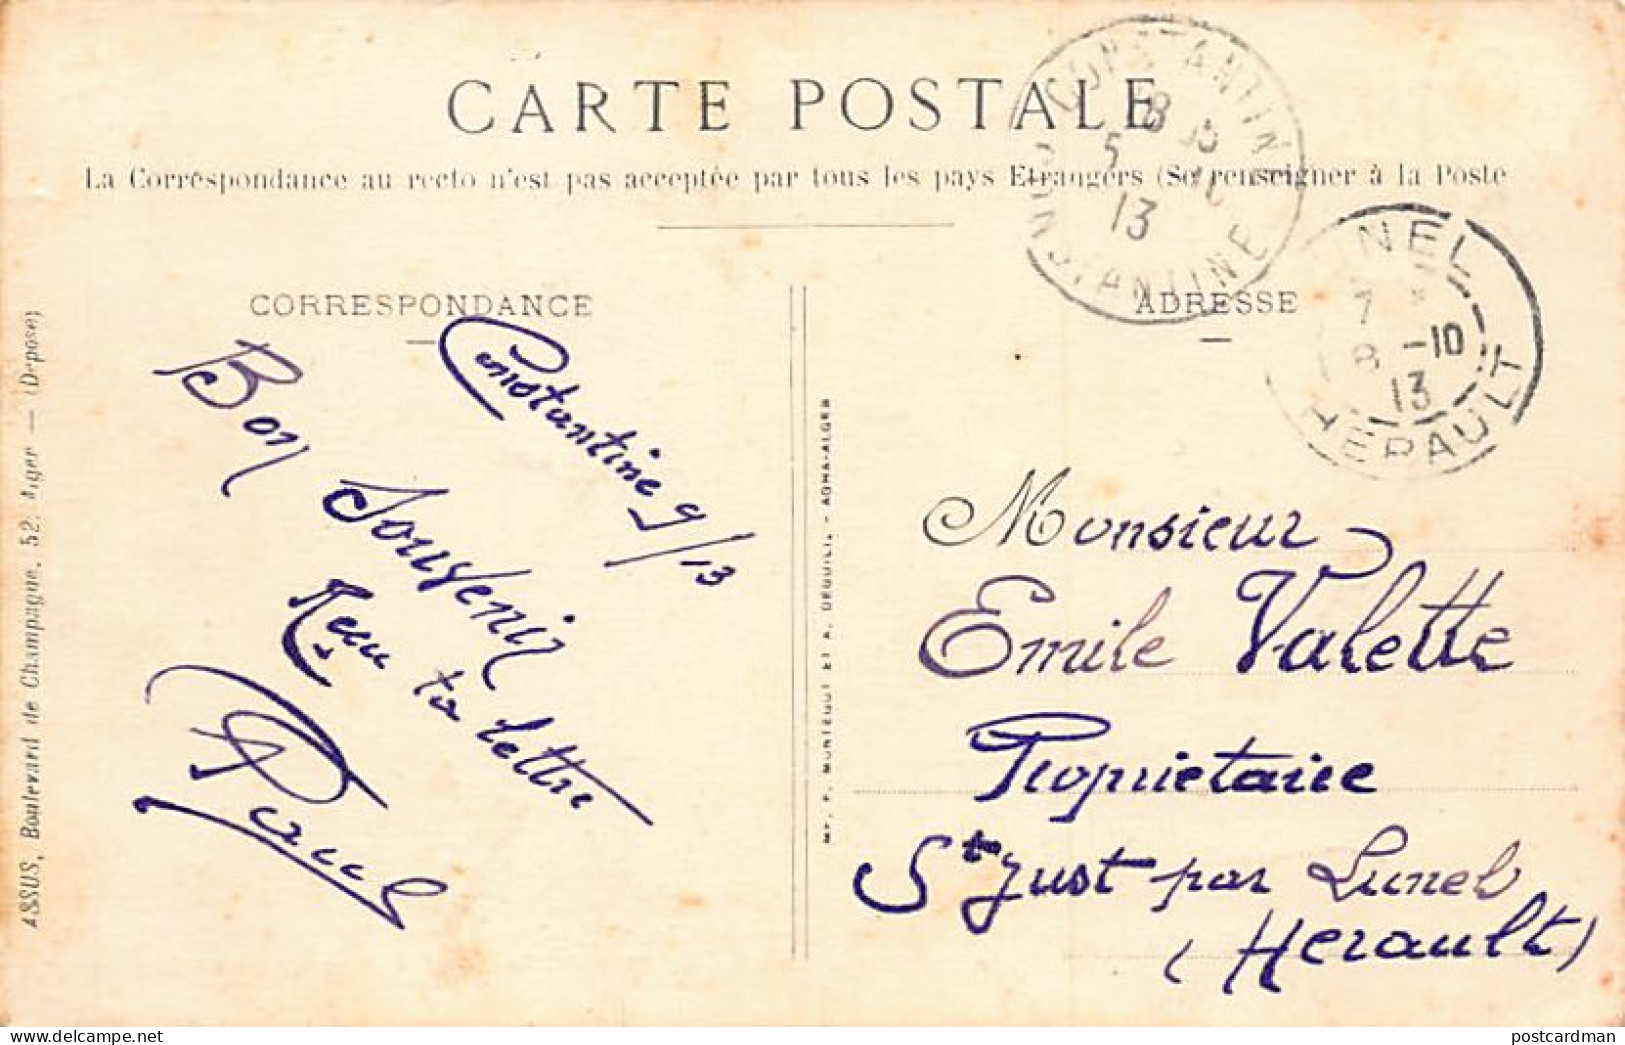 CARTE POSTALE
La Correspondance au recto n'est pas acceptée par tous les pays Etrangers (Se renseigner à la Poste
CORRESPONDANCE
Constantine 9/13
Bon Souvenir
Reçu ta lettre
ADRESSE
Monsieur
Emile Valette
Propriétaire
St Just par Lunel
(Herault)
ASSUS, Boulevard de Champagne, 52, Alger — (Déposé)
CONSTANTINE
8
5
13
CONSTANTINE
LUNEL
7
8 -10
13
HERAULT
delcampe.net
postcardman